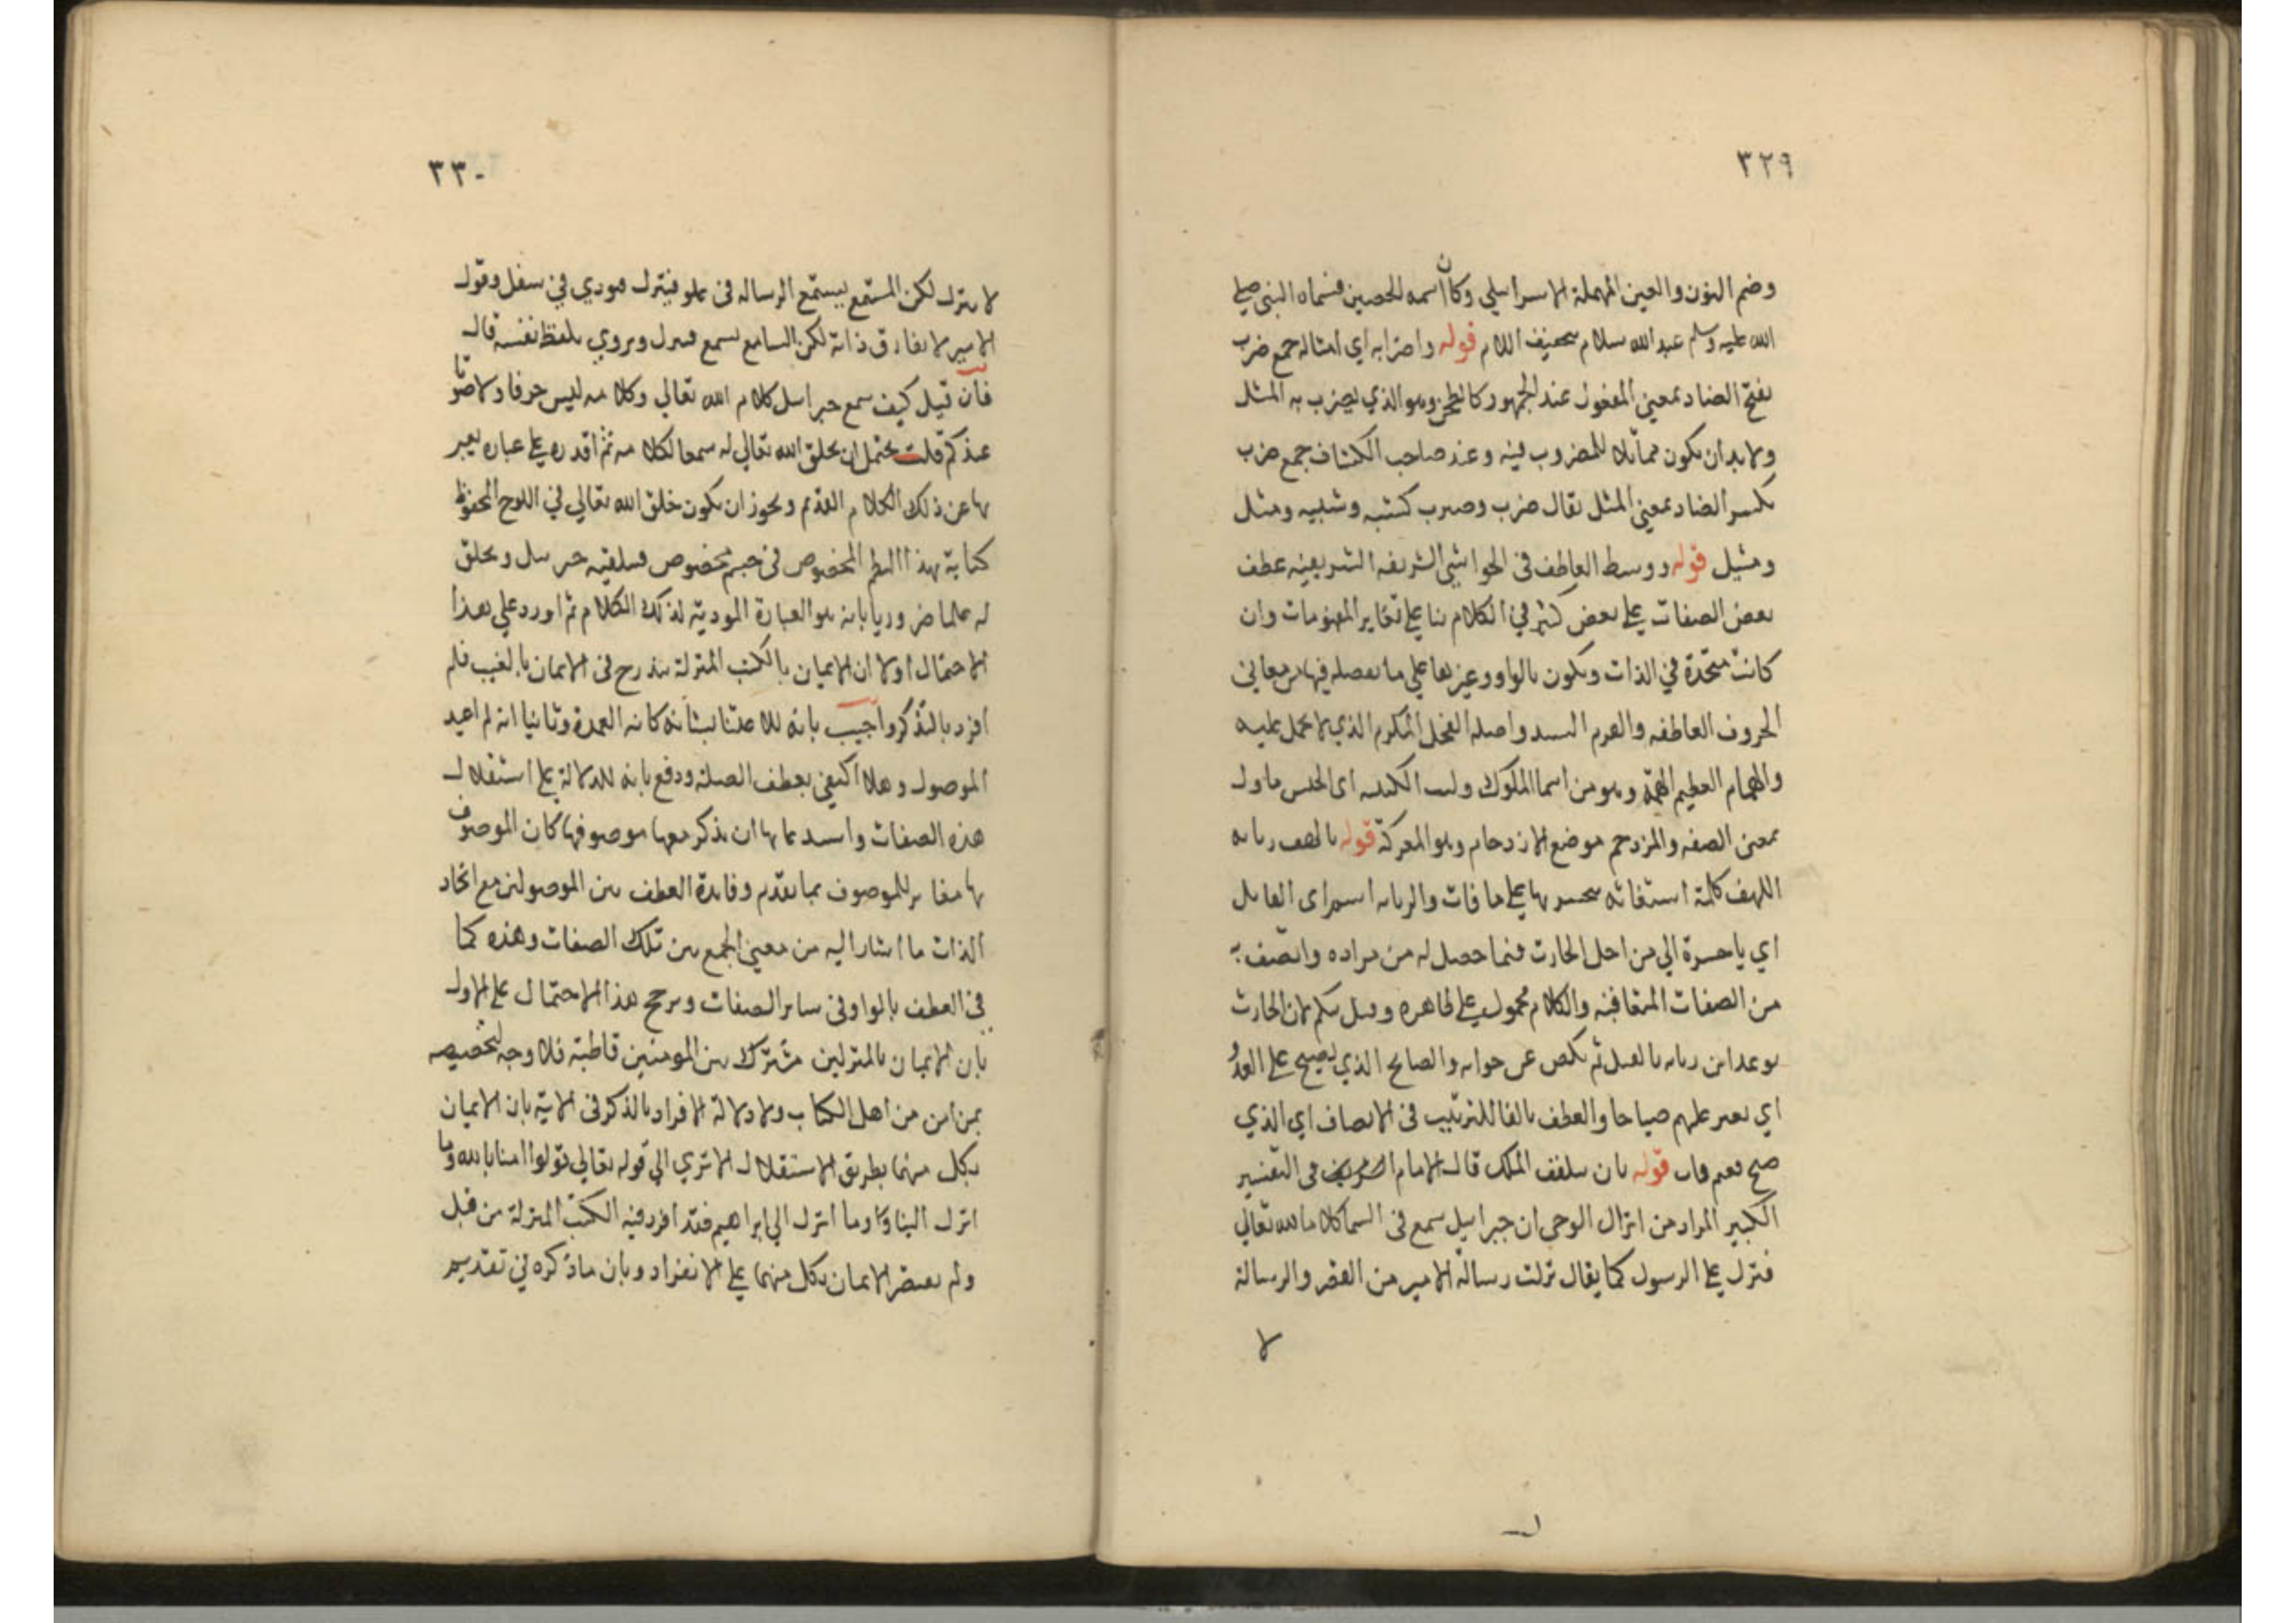 ٣٢٩
وضم النون والعين المهملة الاسراىلي وكان اسمه الحصين فسماه النبي صلى
الله عليه وسلم عبد الله سلام بتخفيف اللام قوله واضرابه اي امثاله جمع ضرب
بفتح الضاد بمعنى المفعول عند الجمهور كالطحن وهو الذي يضرب به المثل
ولابد ان يكون مماثلا للمضروب فيه وعند صاحب الكشاف جمع ضرب
بكسر الضاد بمعنى المثل يقال ضرب وضريب كشبه وشبيه ومثل
ومثيل قوله ووسط العاطف في الحواشي الشريفه الشريفيه عطف
بعض الصفات على بعض كثير في الكلام بنا على تغاير المفهومات وان
كانت متحدة في الذات ويكون بالواو وغيرها على ما تفصله فيها من معاني
الحروف العاطفه والقرم السيد واصله الفحل المكرم الذي لا يحمل عليه
والهمام العظيم الهمة وهو من اسما الملوك وليث الكتيبه اى الجيش ماول
بمعنى الصفه والمزدحم موضع الازدحام وهو المعركة قوله يا لهف زيابه
اللهف كلمة استغاثه يتحسر بها على ما فات والزيابه اسم ابى القايل
اي يا حسرة ابي من اجل الحارث فيما حصل له من مراده واتصف به
من الصفات المتعاقبة والكلام محمول على ظاهره وقيل تهكم لان الحارث
توعد ابن زيابه بالقتل ثم نكص عن جوابه والصابح الذي يصبح على العدو
اي يغير عليهم صباحا والعطف بالفا للترتيب في الاتصاف اي الذي
صبح فغنم فاب قوله بان يتلقف الملك قال الامام في التفسير
الكبير المراد من انزال الوحي ان جبراىيل سمع في السما كلاما لله تعالى
فنزل على الرسول كما يقال نزلت رسالة الامير من القصر والرسالة
لا
٣٣٠
لا تنزل لكن المستمع يستمع الرساله في علو فينزل فيودي في سفل وقول
الامير لا يفارق ذاته لكن السامع يسمع فينزل ويروي بلفظ نفسه قال
فان قيل كيف سمع جبراىيل كلام الله تعالي وكلامه ليس حرفا ولا صوتا
عندكم قلت يحتمل ان يخلق الله تعالي له سمعا لكلامه ثم اقدره على عباره يعبر
بها عن ذلك الكلام القديم ويجوز ان يكون خلق الله تعالي في اللوح المحفوظ
كتابة بهذا النظم المخصوص في جسم مخصوص فيتلقيه جبرىيل ويخلق
له علما ضروريا بانه هو العبارة المودية لذلك الكلام ثم اورد علي هذا
الاحتمال اولا ان الايمان بالكتب المنزلة يندرج في الايمان بالغيب فلم
افرد بالذكر واجيب بانه للاعتنا بشانه كانه العمدة وثانيا انه لم اعيد
الموصول وهلا اكتفي بعطف الصلة ودفع بانه للدلالة على استقلال
هذه الصفات واستدعايها ان يذكر معها موصوفها كان الموصوف
بها مغاير للموصوف بما تقدم وفايدة العطف بين الموصولين مع اتحاد
الذات ما اشار اليه من معني الجمع بين تلك الصفات وهذه كما
في العطف بالواو في ساير الصفات ويرجح هذا الاحتمال على الاول
بان الايمان بالمنزلين مشترك بين المومنين قاطبة فلا وجه لتخصيصه
بمن امن من اهل الكتاب ولا دلالة لافراد بالذكر في الاية بان الايمان
بكل منهما بطريق الاستقلال الا تري الي قوله تعالي قولوا امنا بالله وما
انزل الينا وما انزل الي ابراهيم فقد افرد فيه الكتب المنزلة من قبل
ولم يقتض الايمان بكل منهما على الانفراد وبان ما ذكره في تقديم